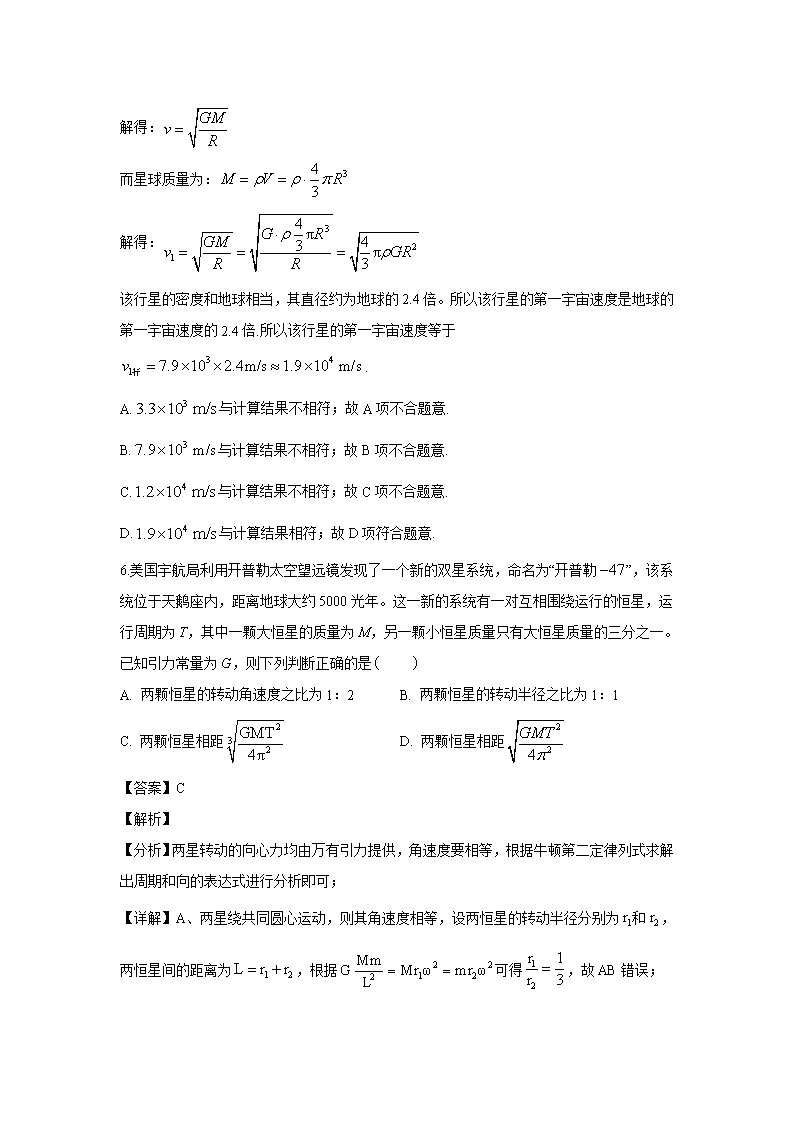 解得：v = √(GM/R)
而星球质量为：M = ρV = ρ · 4/3 πR³
解得：v₁ = √(GM/R) = √(G · ρ 4/3 πR³ / R) = √(4/3 πρGR²)
该行星的密度和地球相当，其直径约为地球的 2.4 倍。所以该行星的第一宇宙速度是地球的
第一宇宙速度的 2.4 倍.所以该行星的第一宇宙速度等于
v₁行 = 7.9×10³×2.4m/s ≈ 1.9×10⁴ m/s .
A. 3.3×10³ m/s与计算结果不相符；故 A 项不合题意.
B. 7.9×10³ m/s与计算结果不相符；故 B 项不合题意.
C. 1.2×10⁴ m/s与计算结果不相符；故 C 项不合题意.
D. 1.9×10⁴ m/s与计算结果相符；故 D 项符合题意.
6.美国宇航局利用开普勒太空望远镜发现了一个新的双星系统，命名为“开普勒−47”，该系
统位于天鹅座内，距离地球大约 5000 光年。这一新的系统有一对互相围绕运行的恒星，运
行周期为 T，其中一颗大恒星的质量为 M，另一颗小恒星质量只有大恒星质量的三分之一。
已知引力常量为 G，则下列判断正确的是( )
A. 两颗恒星的转动角速度之比为 1：2 B. 两颗恒星的转动半径之比为 1：1
C. 两颗恒星相距 ³√(GMT²/4π²) D. 两颗恒星相距 √(GMT²/4π²)
【答案】C
【解析】
【分析】两星转动的向心力均由万有引力提供，角速度要相等，根据牛顿第二定律列式求解
出周期和向的表达式进行分析即可；
【详解】A、两星绕共同圆心运动，则其角速度相等，设两恒星的转动半径分别为 r₁和 r₂，
两恒星间的距离为 L = r₁ + r₂，根据 G Mm/L² = Mr₁ω² = mr₂ω² 可得 r₁/r₂ = 1/3，故 AB 错误；